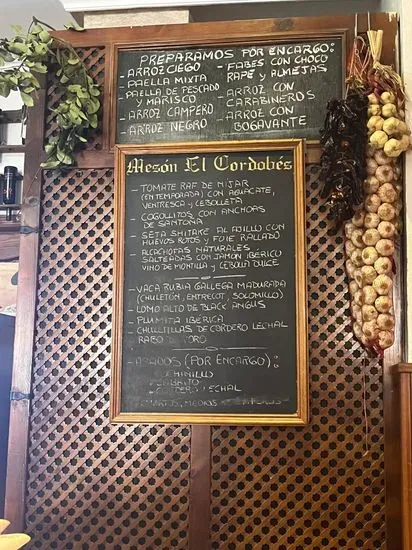 PREPARAMOS POR ENCARGO:
- ARROZ CIEGO
- PAELLA MIXTA
- PAELLA DE PESCADO
Y MARISCO
- ARROZ CAMPERO
- ARROZ NEGRO
- FABES CON CHOCO
RAPE Y ALMEJAS
- ARROZ CON
CARABINEROS
- ARROZ CON
BOGAVANTE
Mesón El Cordobés
- TOMATE RAF DE NIJAR
(EN TEMPORADA) CON AGUACATE,
VENTRESCA Y CEBOLLETA
- COGOLLITOS CON ANCHOAS
DE SANTOÑA
- SETA SHITAKE AL AJILLO CON
HUEVOS ROTOS Y FOIE RALLADO
- ALCACHOFAS NATURALES
SALTEADAS CON JAMÓN IBÉRICO
VINO DE MONTILLA Y CEBOLLA DULCE
- VACA RUBIA GALLEGA MADURADA
(CHULETÓN, ENTRECOT, SOLOMILLO)
- LOMO ALTO DE BLACK ANGUS
- PLUMITA IBÉRICA
- CHULLITILLAS DE CORDERO LECHAL
RABO
- ASADOS (POR ENCARGO):
LECHAL
MEDIOS